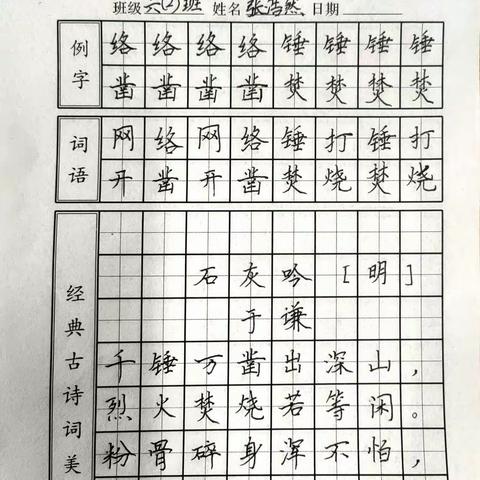 班级六(2)班 姓名张浩然 日期
例字
络络络络锤锤锤锤
凿凿凿凿焚焚焚焚
词语
网络网络锤打锤打
开凿开凿焚烧焚烧
经典古诗词美
石灰吟 [明]
于谦
千锤万凿出深山，
烈火焚烧若等闲。
粉骨碎身浑不怕，